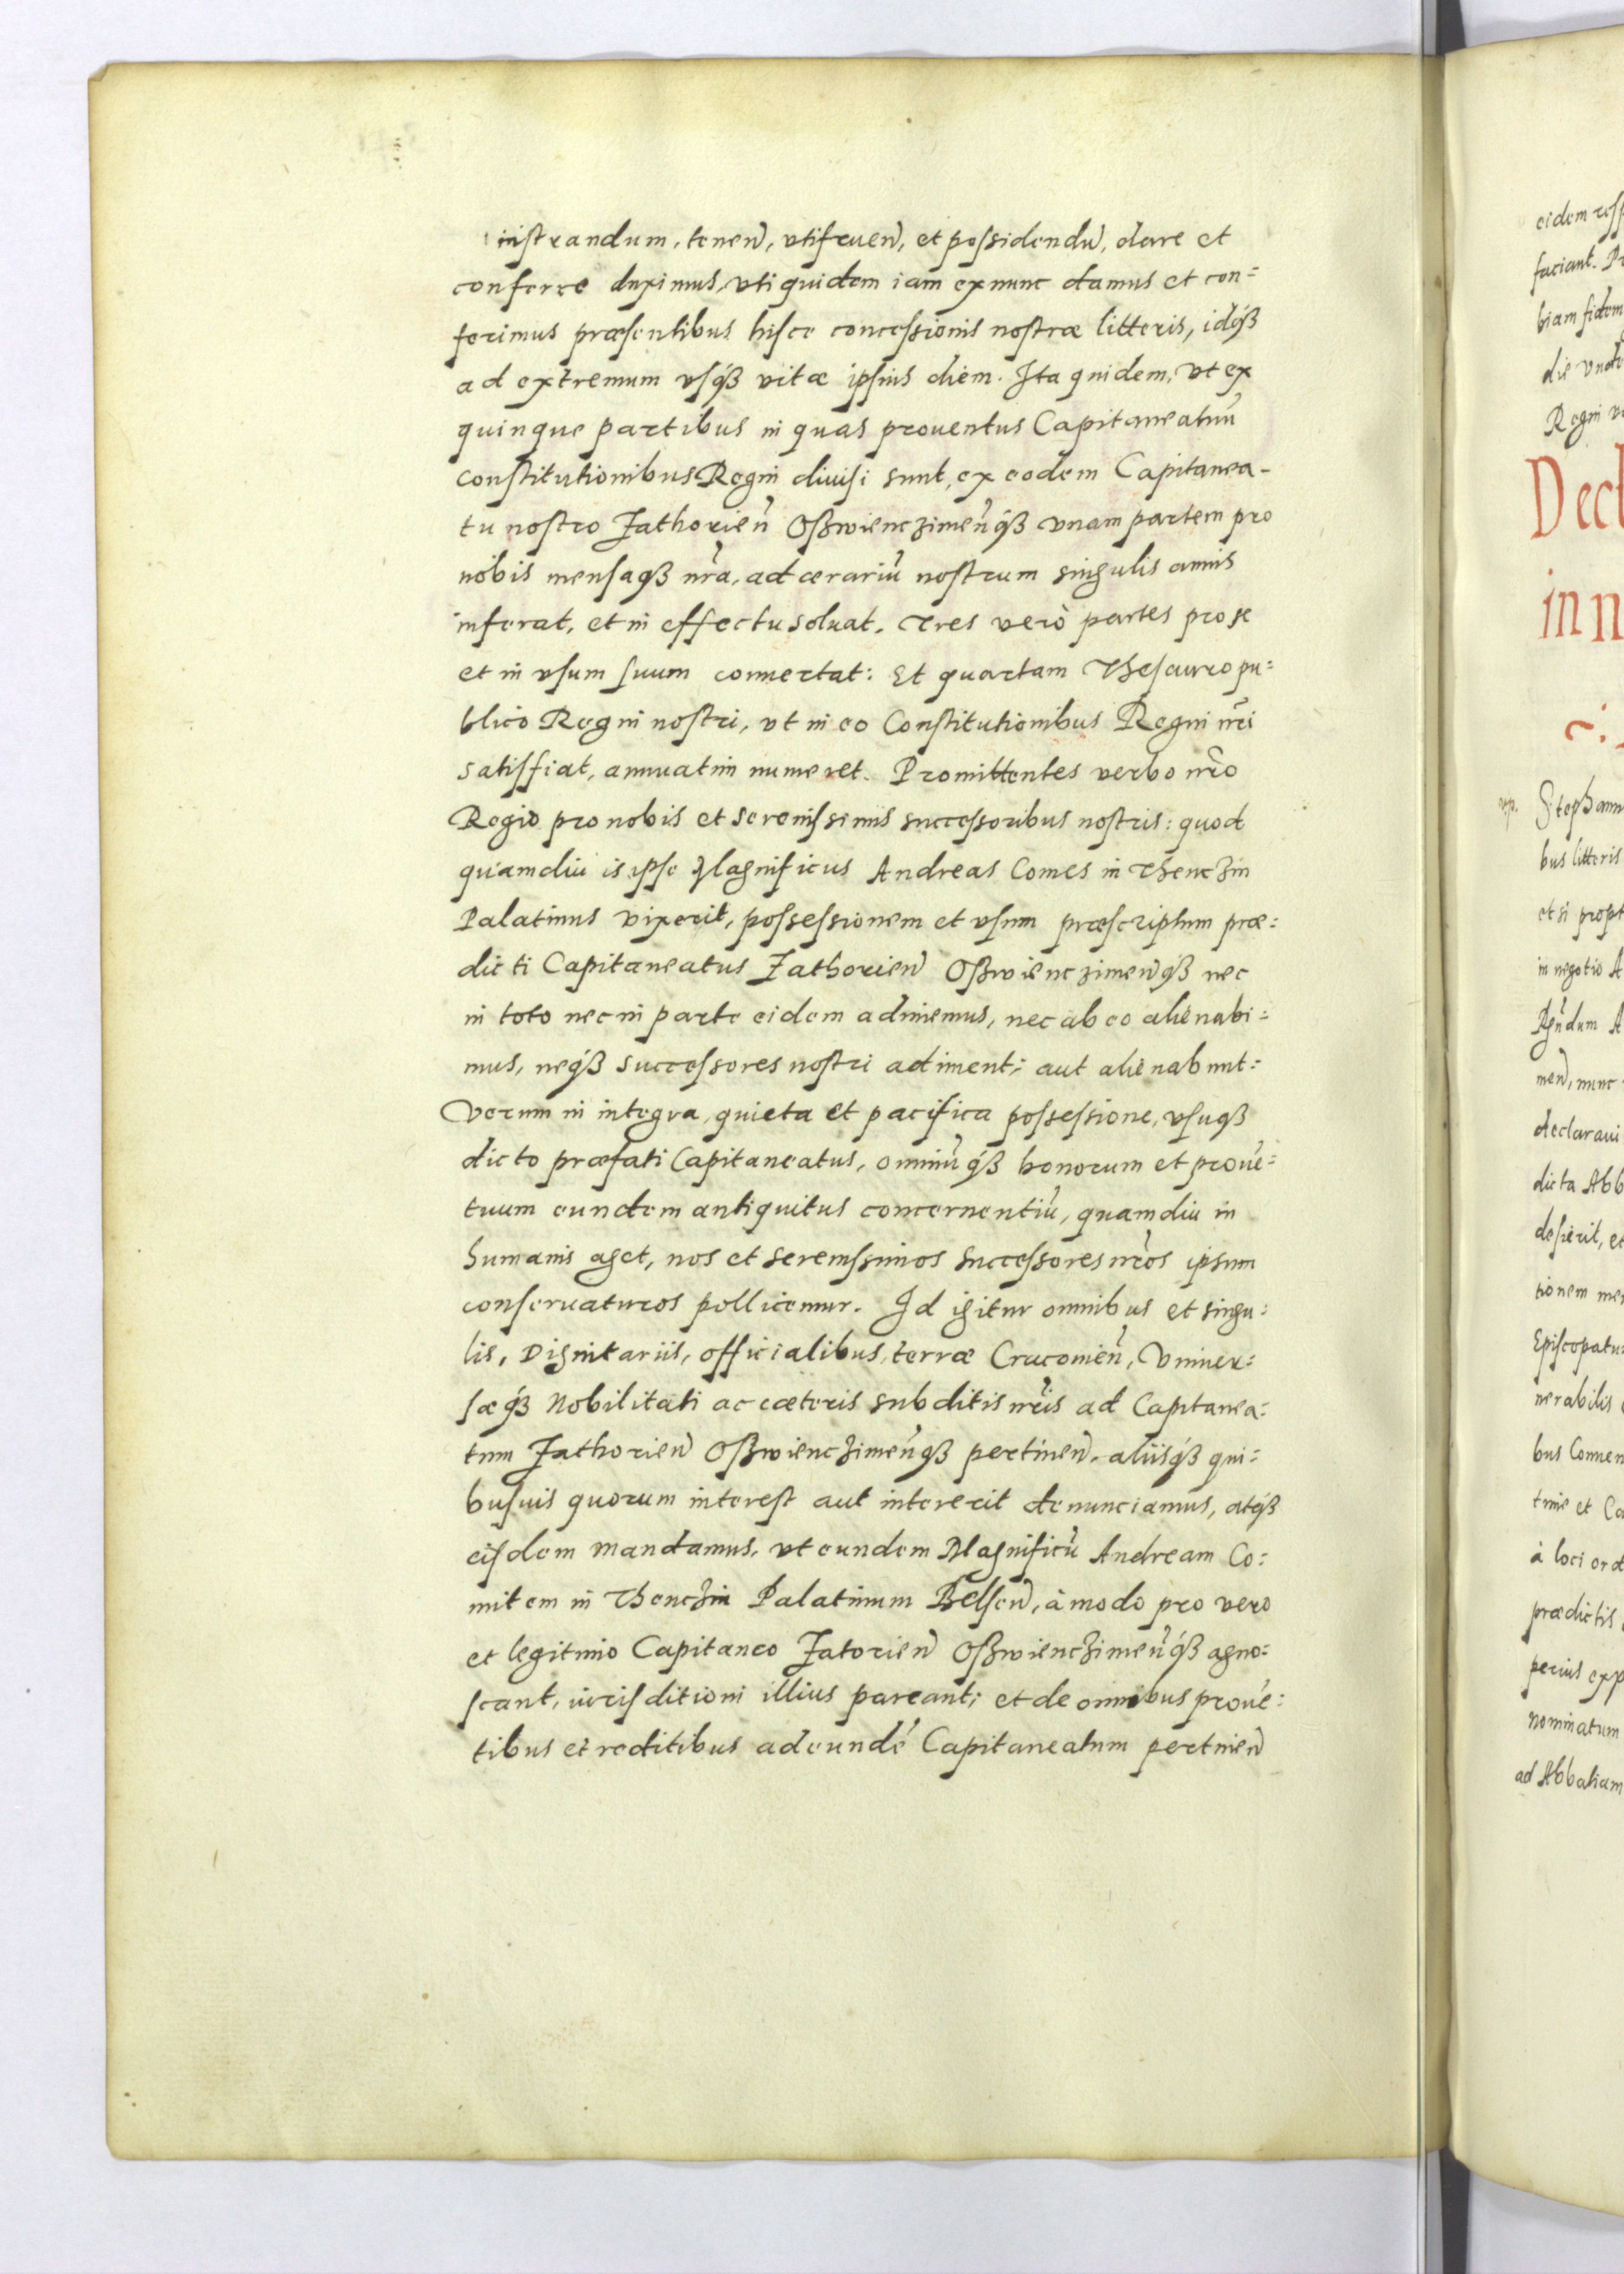 nistrandum, tenen̄, vtifruen̄, et possidendū, dare et
conferre duximus, vti quidem iam ex nunc damus et con=
ferimus præsentibus hisce concessionis nostræ litteris, idq́ꝫ
ad extremum vsq́ꝫ vitæ ipsius diem. Ita quidem, vt ex
quinque partibus in quas prouentus Capitaneatuū
constitutionibus Regni diuisi sunt, ex eodem Capitanea-
tu nostro Zathorien̄ Oßwienczimen̄q́ꝫ vnam partem pro
nobis mensaqꝫ nr̄a, ad ærariū nostrum singulis annis
inferat, et in effectu soluat. Tres verò partes pro se
et in vsum suum conuertat: Et quartam Thesauro pu=
blico Regni nostri, vt in eo Constitutionibus Regni nr̄i
satisfiat, annuatim numeret. Promittentes verbo nr̄o
Regio pro nobis et serenissimis successoribus nostris: quod
quamdiu is ipse Magnificus Andreas Comes in Thenczin
Palatinus vixerit, possessionem et vsum præscriptum præ=
dicti Capitaneatus Zathorien̄ Oßwienczimen̄q́ꝫ nec
in toto nec in parte eidem adimemus, nec ab eo alienabi=
mus, neq́ꝫ successores nostri adiment; aut alienabunt:
Verum in integra, quieta et pacifica possessione, vsuqꝫ
dicto præfati Capitaneatus, omniū q́ꝫ bonorum et prouē=
tuum eundem antiquitus concernentiū, quamdiu in
humanis aget, nos et serenissimos successores nr̄os ipsum
conseruaturos pollicemur. Id igitur omnibus et singu=
lis, Dignitariis, officialibus, terræ Cracouien̄, Vniuer=
sæq́ꝫ Nobilitati ac cæteris subditis nr̄is ad Capitanea=
tum Zathorien̄ Oßwienczimen̄qꝫ pertinen̄. aliisq́ꝫ qui=
busuis quorum interest aut intererit denunciamus, atq́ꝫ
eisdem mandamus, vt eundem Magnificū Andream Co=
mitem in Thenczin Palatinum Belsen̄, à modo pro vero
et legitimo Capitaneo Zatorien̄ Oßwienczimen̄q́ꝫ agno=
scant, iurisditioni illius pareant; et de omnibus prouē=
tibus et reditibus ad eundē Capitaneatum pertinen̄
eidem
faciant.
biam fidem
die
Regni
Decl
in n
Stephann
bus litteris
et si
in negotio A
men̄, nunc
declaraui
dicta Abb
desierit, et
tionem
Episcopatu
nerabilis
bus Conuen
et
à loci ord
prædictis
exp
nominatum
ad Abbatiam